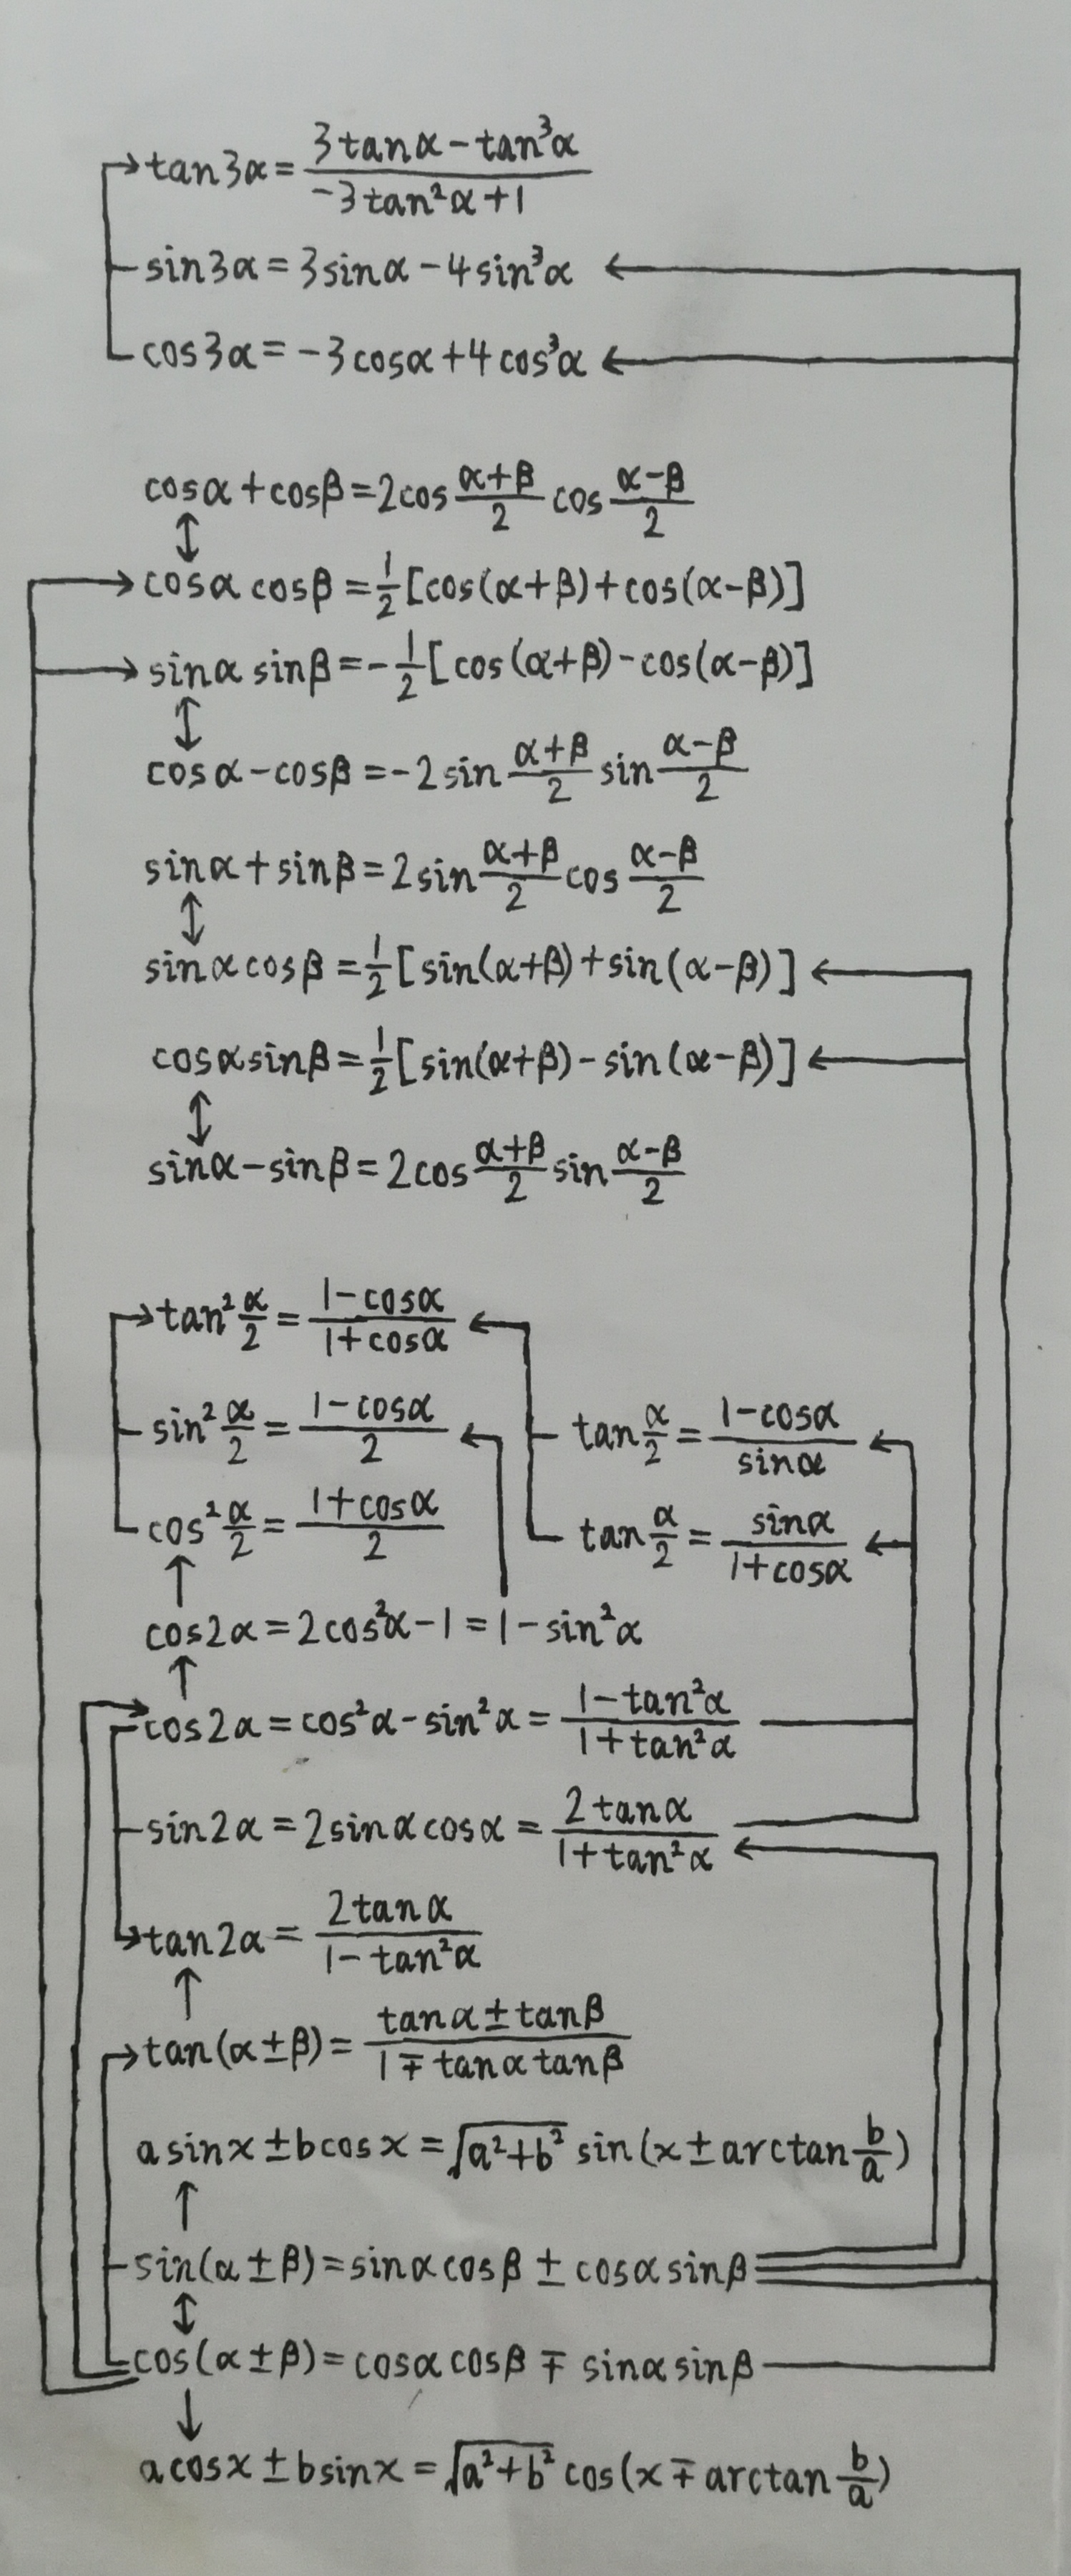 tan3α = (3tanα − tan³α)/(−3tan²α + 1)
sin3α = 3sinα − 4sin³α
cos3α = −3cosα + 4cos³α
cosα + cosβ = 2cos (α+β)/2 cos (α−β)/2
cosα cosβ = 1/2 [cos(α+β) + cos(α−β)]
sinα sinβ = −1/2 [cos(α+β) − cos(α−β)]
cosα − cosβ = −2sin (α+β)/2 sin (α−β)/2
sinα + sinβ = 2sin (α+β)/2 cos (α−β)/2
sinα cosβ = 1/2 [sin(α+β) + sin(α−β)]
cosα sinβ = 1/2 [sin(α+β) − sin(α−β)]
sinα − sinβ = 2cos (α+β)/2 sin (α−β)/2
tan² α/2 = (1−cosα)/(1+cosα)
sin² α/2 = (1−cosα)/2 tan α/2 = (1−cosα)/sinα
cos² α/2 = (1+cosα)/2 tan α/2 = sinα/(1+cosα)
cos2α = 2cos²α − 1 = 1 − sin²α
cos2α = cos²α − sin²α = (1−tan²α)/(1+tan²α)
sin2α = 2sinα cosα = 2tanα/(1+tan²α)
tan2α = 2tanα/(1−tan²α)
tan(α±β) = (tanα ± tanβ)/(1 ∓ tanα tanβ)
a sinx ± b cosx = √(a²+b²) sin(x ± arctan b/a)
sin(α±β) = sinα cosβ ± cosα sinβ
cos(α±β) = cosα cosβ ∓ sinα sinβ
a cosx ± b sinx = √(a²+b²) cos(x ∓ arctan b/a)